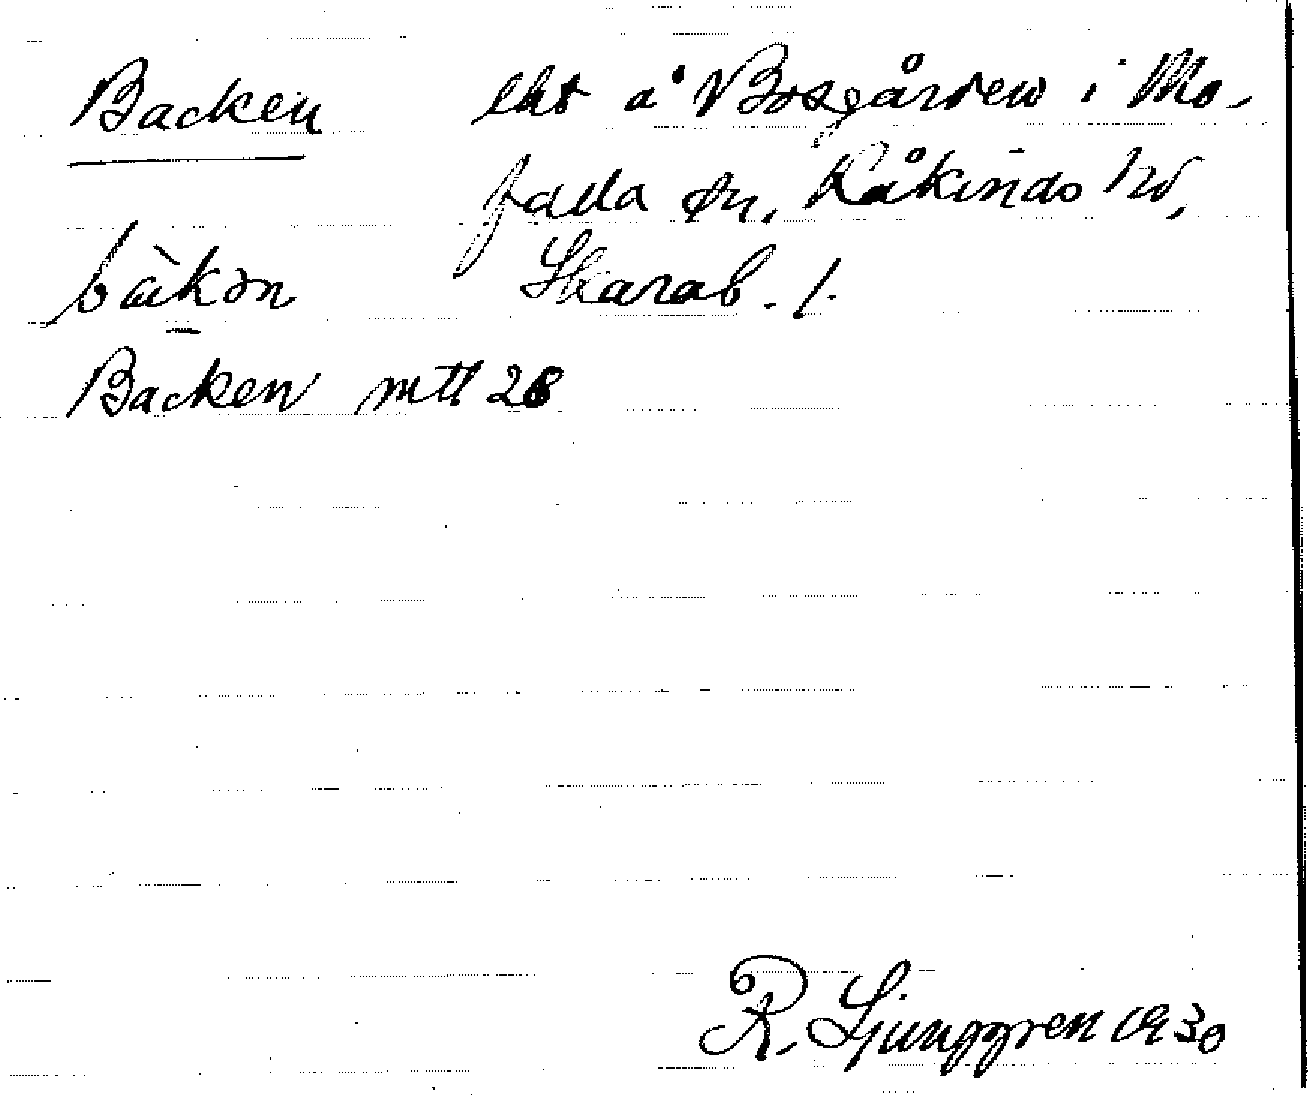 Backen lht å Bosgården i Mo-
falla sn, Kåkinds hd,
bàkən Skarab. l.
Backen mtl 28
R. Ljunggren 1930